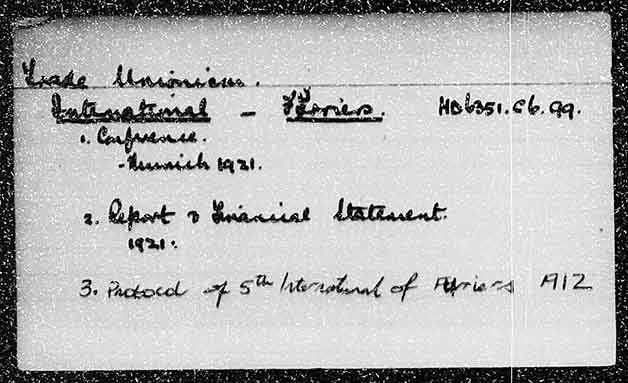 Trade Unionism.
International - Furriers. HD6351.C6.99.
1. Conference.
- Munich 1921.
2. Report & Financial Statement.
1921.
3. Protocol of 5th International of Furriers 1912